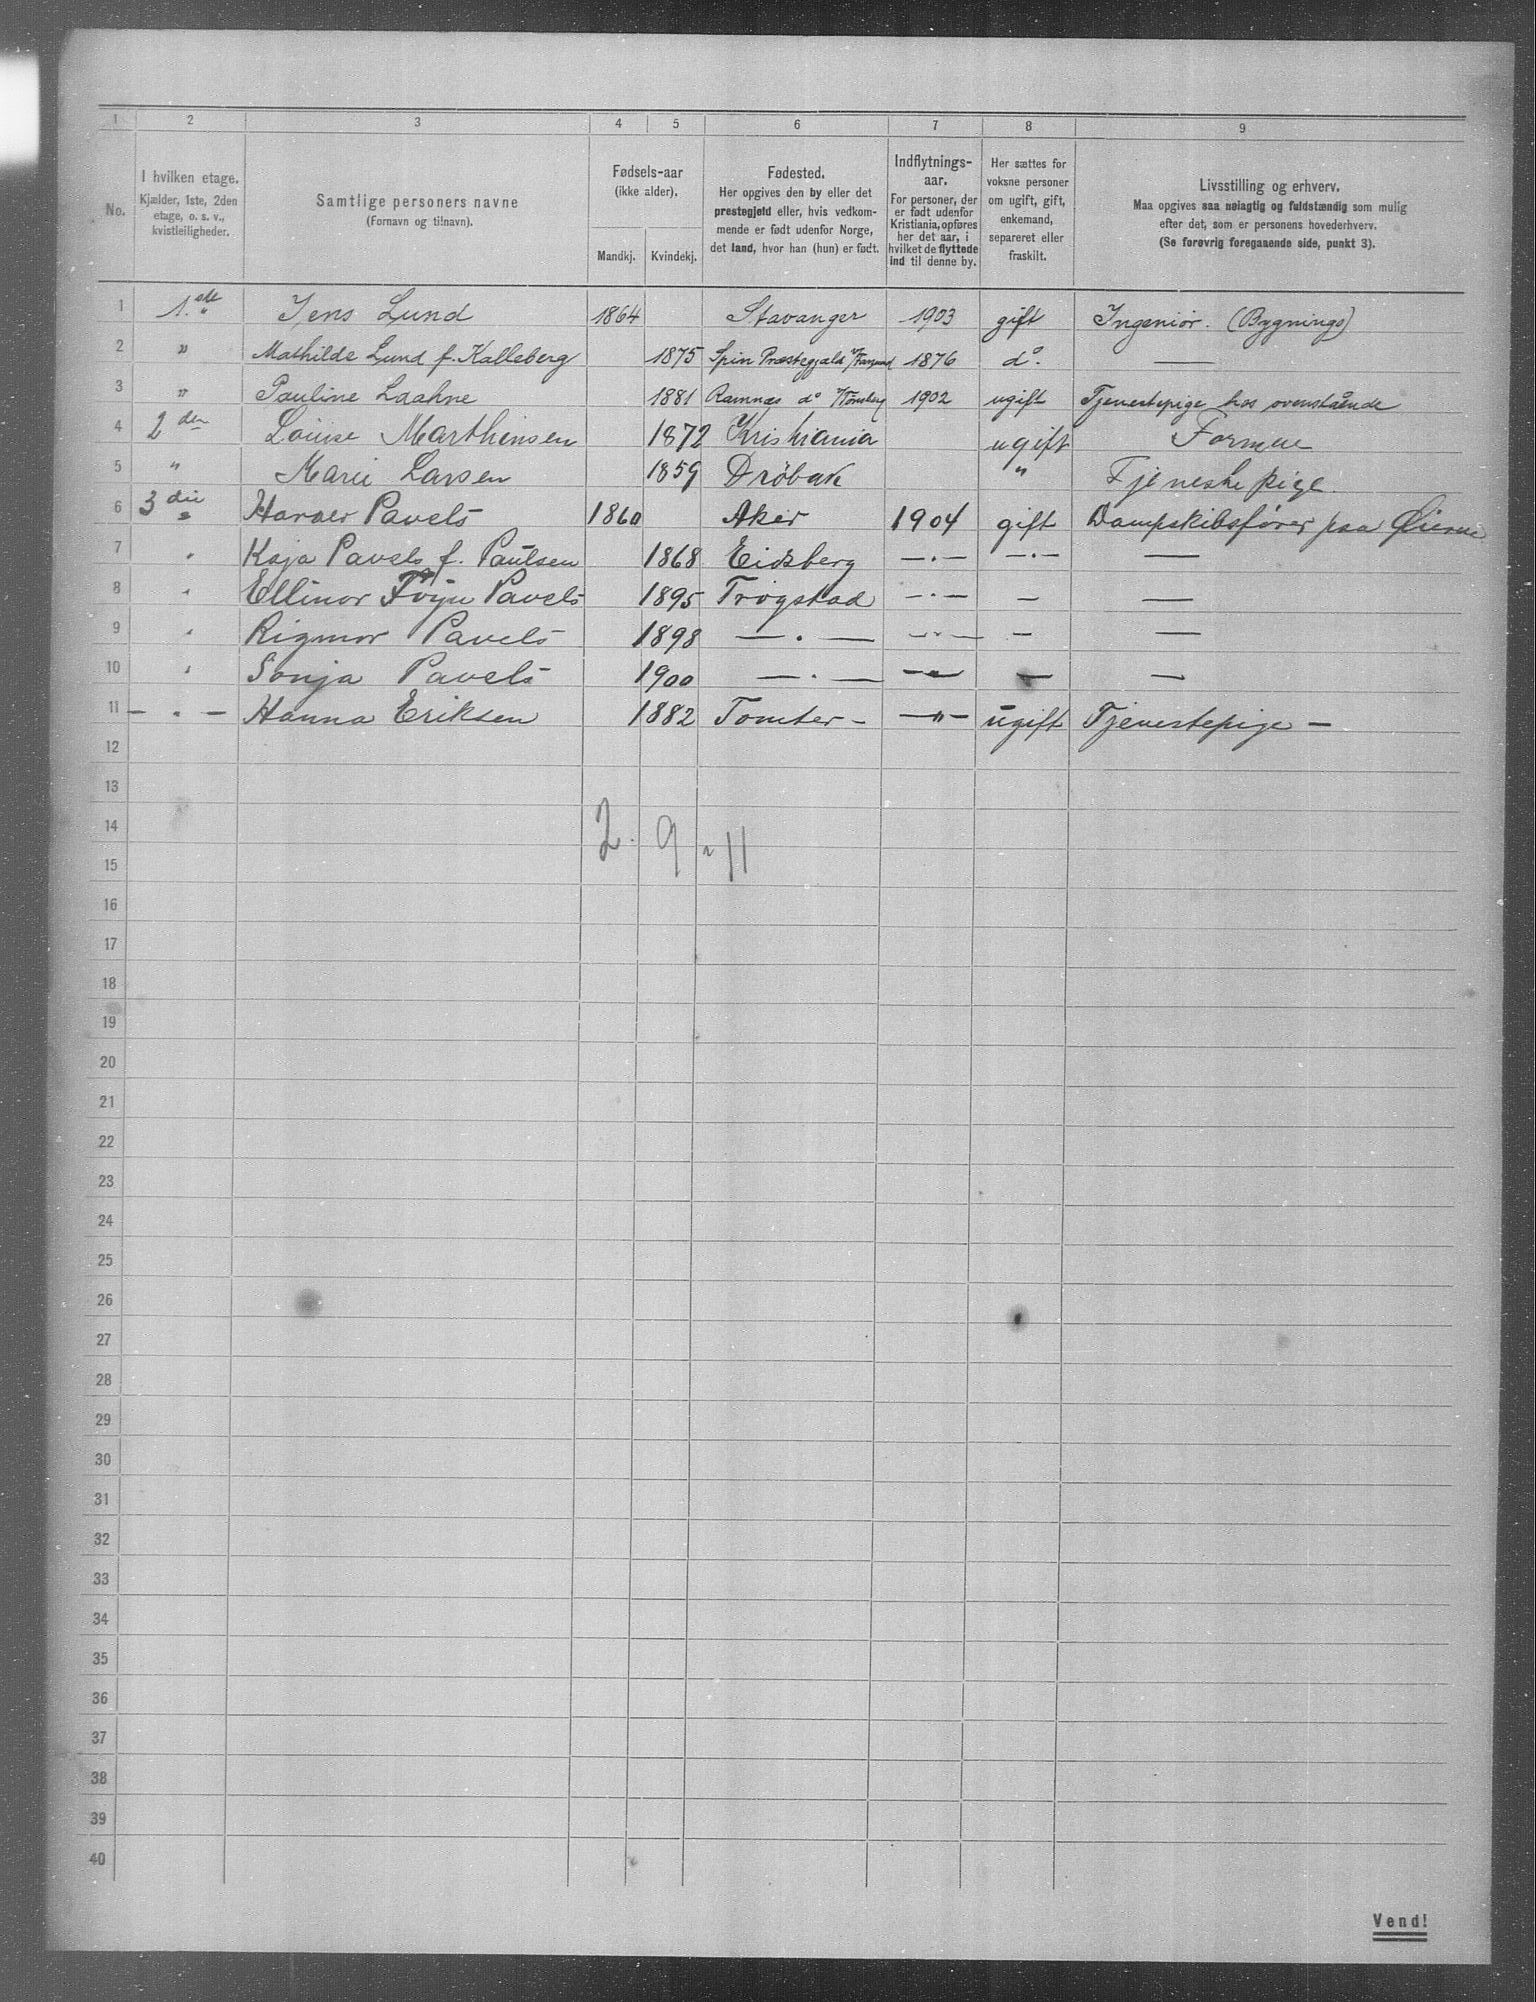 1 2 3 4 5 6 7 8 9
No.
I hvilken etage.
Kjælder, 1ste, 2den
etage, o. s. v.,
kvistleiligheder.
Samtlige personers navne
(Fornavn og tilnavn).
Fødsels-aar
(ikke alder).
Mandkj. Kvindekj.
Fødested.
Her opgives den by eller det
prestegjeld eller, hvis vedkom-
mende er født udenfor Norge,
det land, hvor han (hun) er født.
Indflytnings-
aar.
For personer, der
er født udenfor
Kristiania, opføres
her det aar, i
hvilket de flyttede
ind til denne by.
Her sættes for
voksne personer
om ugift, gift,
enkemand,
separeret eller
fraskilt.
Livsstilling og erhverv.
Maa opgives saa nøiagtig og fuldstændig som mulig
efter det, som er personens hovederhverv.
(Se forøvrig foregaaende side, punkt 3).
1 1. ste Jens Lund 1864 Stavanger 1903 gift Ingeniør. (Bygnings)
2 " Mathilde Lund f. Kalleberg 1875 Spin Præstegjæld 1876 do. —
3 " Pauline Laahne 1881 Ramnæs do v/Tønsberg 1902 ugift Tjenestepige hos ovenstående
4 2 den Louise Marthinsen 1872 Kristiania ugift Formue
5 " Marie Larsen 1859 Drøbak " Tjenestepige.
6 3 die Pavels 1860 Aker 1904 gift Dampskibsfører paa Øieren
7 " Kaja Pavels f. Paulsen 1868 Eidsberg — " — — " — —
8 " Ellinor Pavels 1895 Trøgstad — " — — —
9 " Rigmor Pavels 1898 — " — — " — — —
10 " Sonja Pavels 1900 — " — — " — — —
11 — " — Hanna Eriksen 1882 Tomter — — " — ugift Tjenestepige —
12
13
14 2. 9 = 11
15
16
17
18
19
20
21
22
23
24
25
26
27
28
29
30
31
32
33
34
35
36
37
38
39
40
Vend!